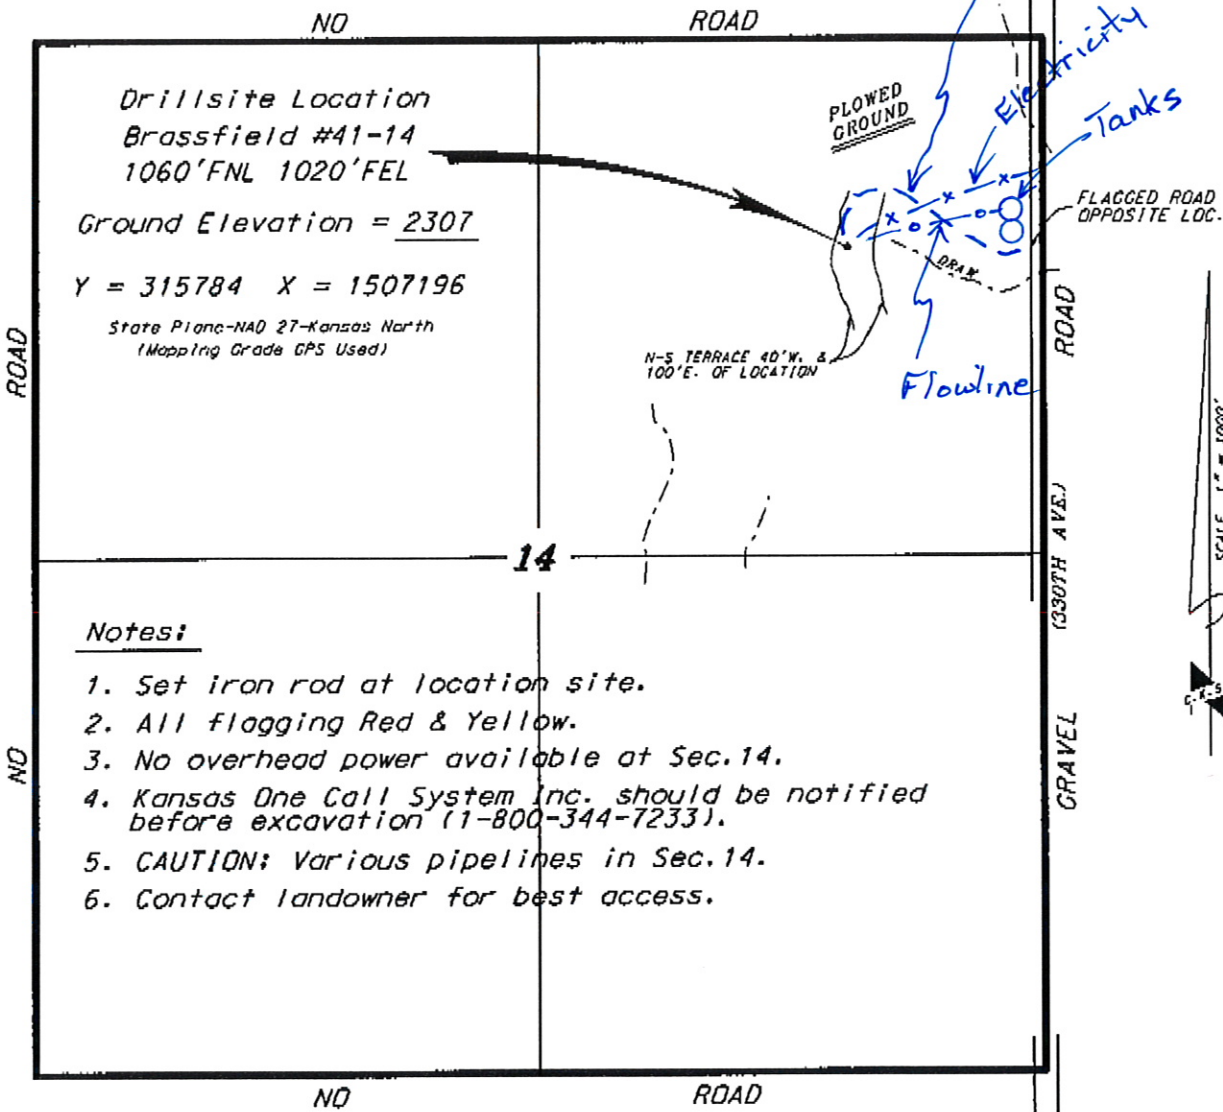 NO ROAD
Drillsite Location
Brassfield #41-14
1060'FNL 1020'FEL
Ground Elevation = 2307
Y = 315784 X = 1507196
State Plane-NAD 27-Kansas North
(Mapping Grade GPS Used)
PLOWED
GROUND
Electricity
Tanks
FLAGGED ROAD
OPPOSITE LOC.
DRAW
N-S TERRACE 40'W. &
100'E. OF LOCATION
Flowline
ROAD
NO
ROAD
(330TH AVE.)
GRAVEL
SCALE 1" = 1000'
C.K.S
14
Notes:
1. Set iron rod at location site.
2. All flagging Red & Yellow.
3. No overhead power available at Sec.14.
4. Kansas One Call System Inc. should be notified
before excavation (1-800-344-7233).
5. CAUTION: Various pipelines in Sec.14.
6. Contact landowner for best access.
NO ROAD